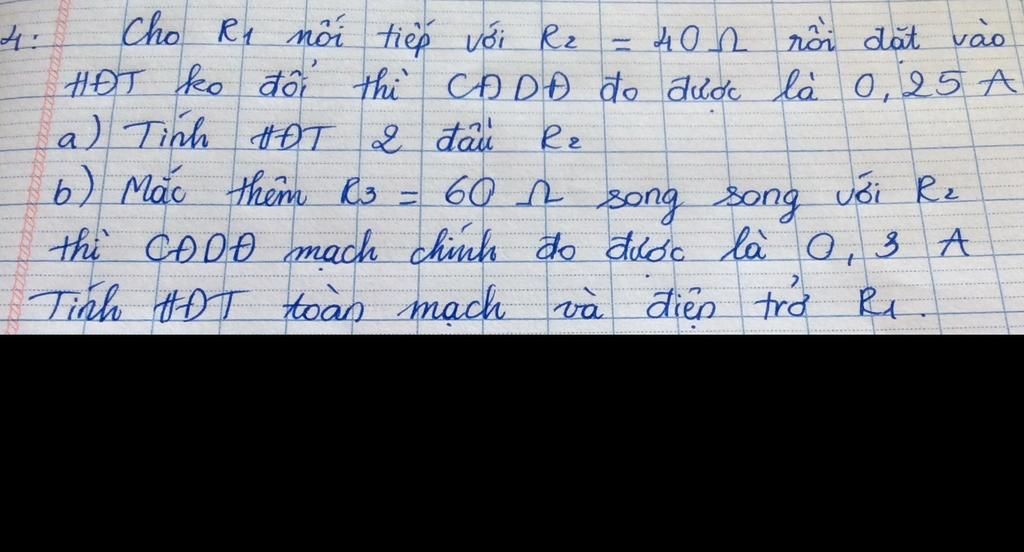 4: Cho R1 nối tiếp với R2 = 40Ω rồi đặt vào
HĐT ko đổi thì CĐDĐ đo được là 0,25 A
a) Tính HĐT 2 đầu R2
b) Mắc thêm R3 = 60 Ω song song với R2
thì CĐDĐ mạch chính đo được là 0,3 A
Tính HĐT toàn mạch và điện trở R1.